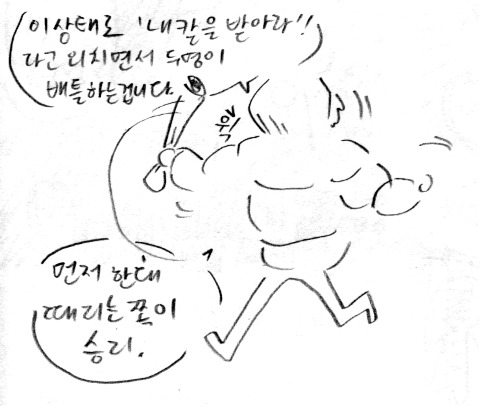 이상태로 '내칼을 받아라!!
다고 외치면서 두명이
배틀하는겁니다.
욱
먼저 한대
때리는 쪽이
승리.